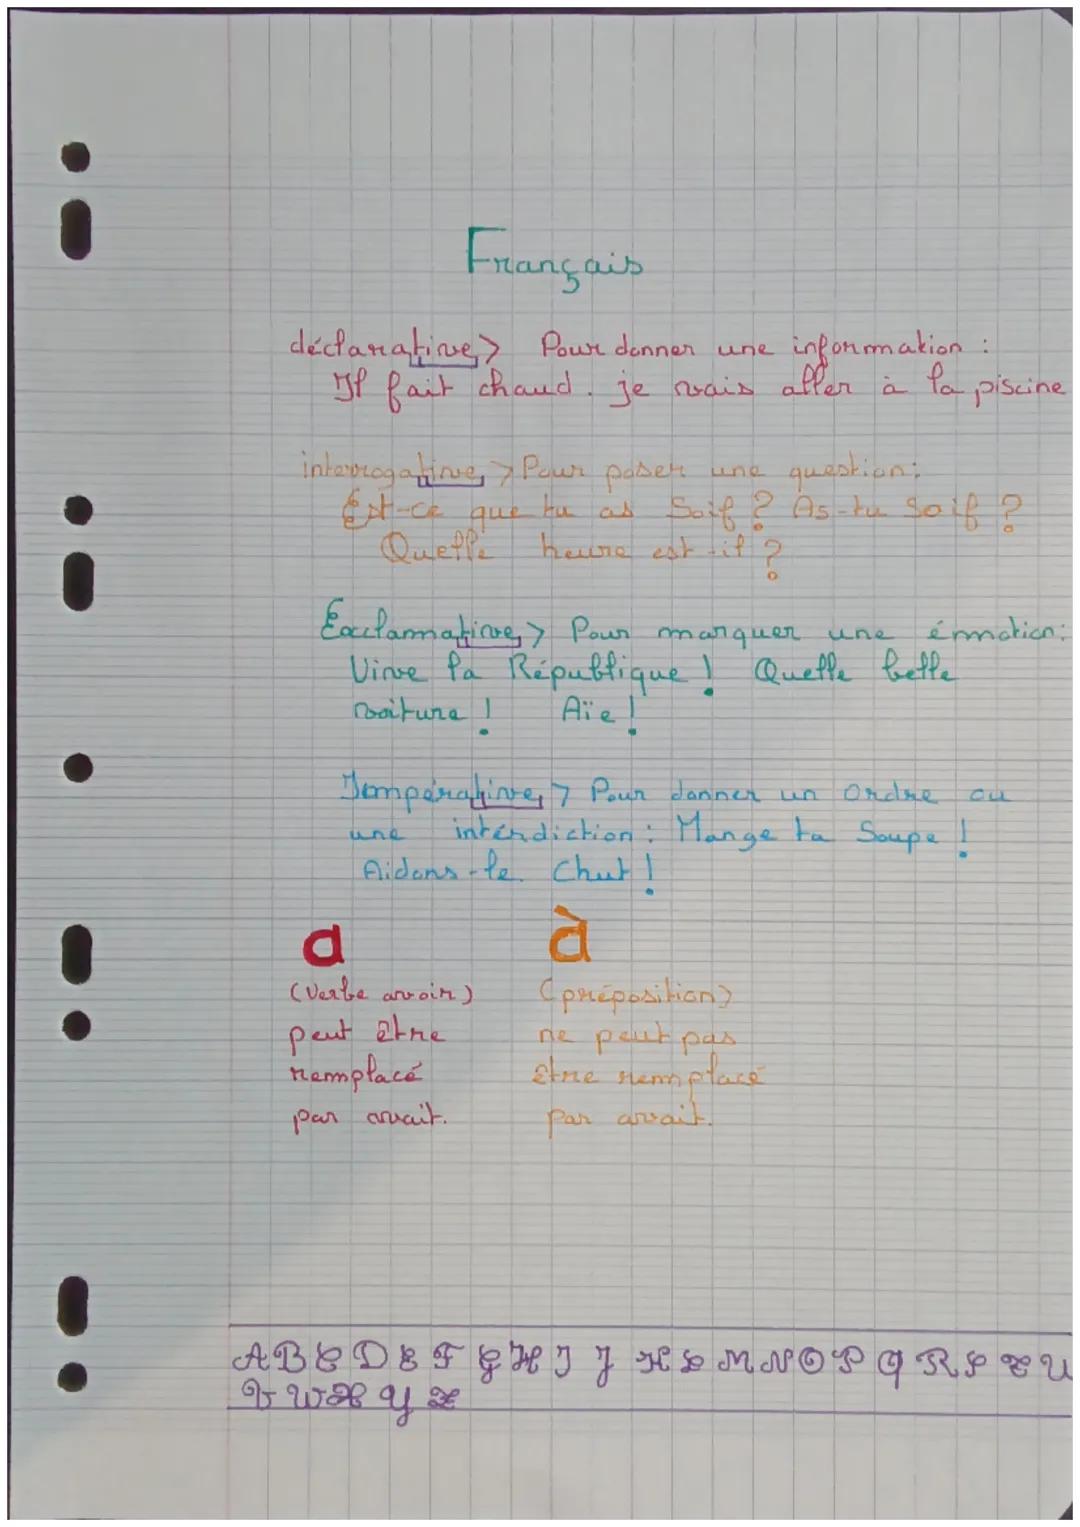 Français
déclarative > Pour donner une information :
Il fait chaud. je vais aller à la piscine
interrogative > Pour poser une question :
Est-ce que tu as Soif ? As-tu Soif ?
Quelle heure est-il ?
Exclamative > Pour marquer une émotion :
Vive la République ! Quelle belle
voiture ! Aïe !
Impérative > Pour donner un ordre ou
une interdiction : Mange ta Soupe !
Aidons-le. Chut !
a à
(Verbe avoir) (préposition)
peut être ne peut pas
remplacé être remplacé
par avait. par avait.
A B C D E F G H I J K L M N O P Q R S T U
V W X Y Z